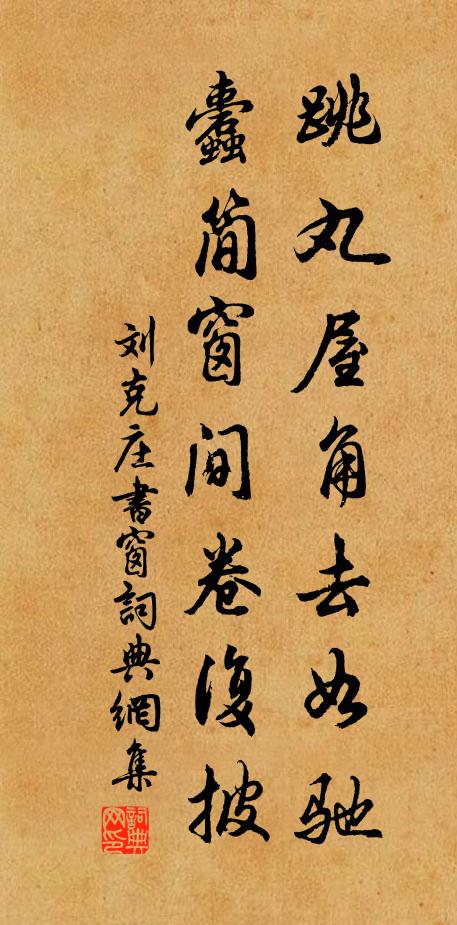 跳丸屋角去如驰
蠹简窗间卷復披
刘克庄书窗詞典網集
詞典网印